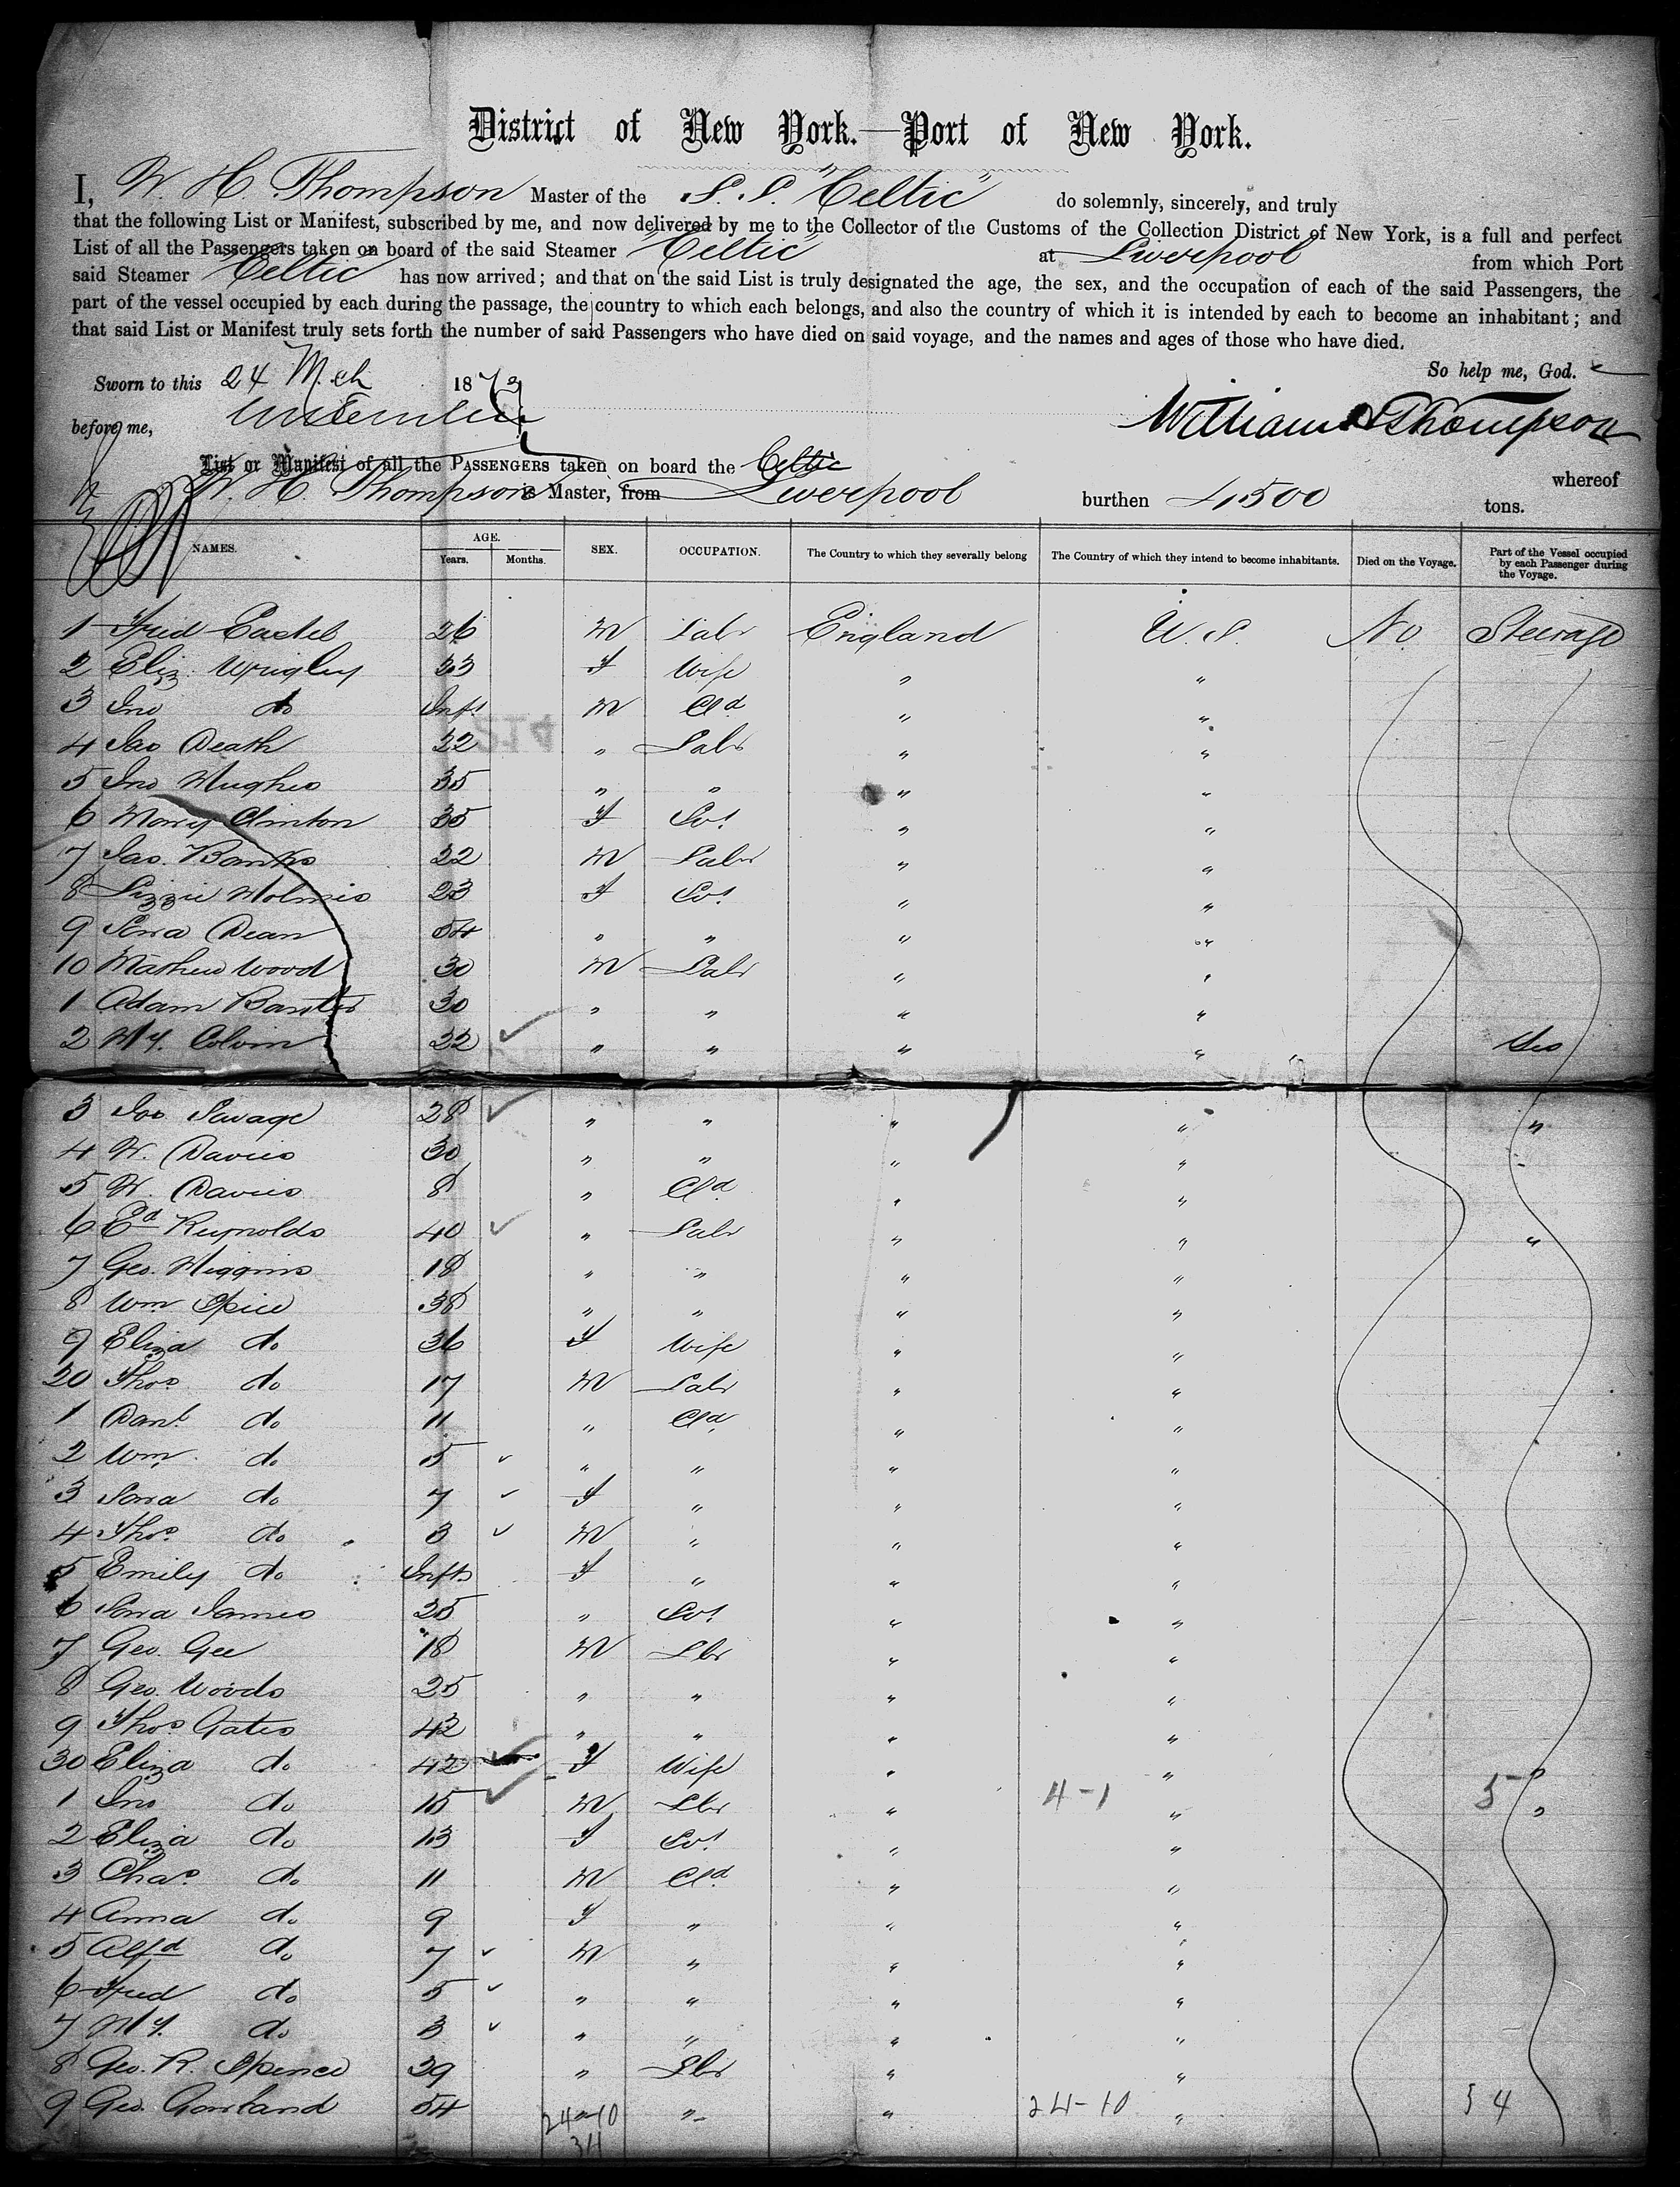 District of New York.—Port of New York.
I, W. H. Thompson Master of the S. S. "Celtic" do solemnly, sincerely, and truly
that the following List or Manifest, subscribed by me, and now delivered by me to the Collector of the Customs of the Collection District of New York, is a full and perfect
List of all the Passengers taken on board of the said Steamer "Celtic" at Liverpool from which Port
said Steamer Celtic has now arrived; and that on the said List is truly designated the age, the sex, and the occupation of each of the said Passengers, the
part of the vessel occupied by each during the passage, the country to which each belongs, and also the country of which it is intended by each to become an inhabitant; and
that said List or Manifest truly sets forth the number of said Passengers who have died on said voyage, and the names and ages of those who have died.
So help me, God.
Sworn to this 24 Mch 1873
before me,
William H Thompson
List or Manifest of all the PASSENGERS taken on board the Celtic whereof
W. H. Thompson is Master, from Liverpool burthen 4500 tons.
NAMES. AGE. Years. Months. SEX. OCCUPATION. The Country to which they severally belong The Country of which they intend to become inhabitants. Died on the Voyage. Part of the Vessel occupied by each Passenger during the Voyage.
1 Fred 26 M Labr England U.S. No Steerage
2 Eliz. Wrigley 23 F Wife " "
3 Jno do Inft M Cld " "
4 Jas Death 22 " Labr " "
5 Jno Hughes 35 " " " "
6 Mary Clinton 35 F Svt " "
7 Jas. Banks 22 M Labr " "
8 Lizzie Holmes 23 F Svt " "
9 Sara Dean 54 " " " "
10 Mathew Wood 30 M Labr " "
1 Adam 30 " " " "
2 Hy. Colvin 22 " " " "
3 Jas. Savage 28 " " " " "
4 W. Davies 30 " " " " "
5 W. Davies 8 " Cld " "
6 Ed Reynolds 40 " Labr " " "
7 Geo. Higgins 18 " " " "
8 Wm Spice 38 " " " "
9 Eliza do 36 F Wife " "
20 Thos do 17 M Labr " "
1 Danl do 11 " Cld " "
2 Wm do 5 " " " "
3 Sara do 7 F " " "
4 Thos do 3 M " " "
5 Emily do Inft F " " "
6 Sara James 25 " Svt " "
7 Geo. Gee 18 M Lbr " "
8 Geo. Woods 25 " " " "
9 Thos Gates 42 " " " "
30 Eliza do 42 F Wife " " "
1 Jno do 15 M Lbr " 4-1 " 5 "
2 Eliza do 13 F Svt " "
3 Chas do 11 M Cld " "
4 Anna do 9 F " " "
5 Alfd do 7 M " " "
6 Fred do 5 " " " "
7 Hy. do 3 " " " "
8 Geo. R. Spence 29 " Lbr " "
9 Geo. Garland 54 24-10 " " 24-10 " 4
34